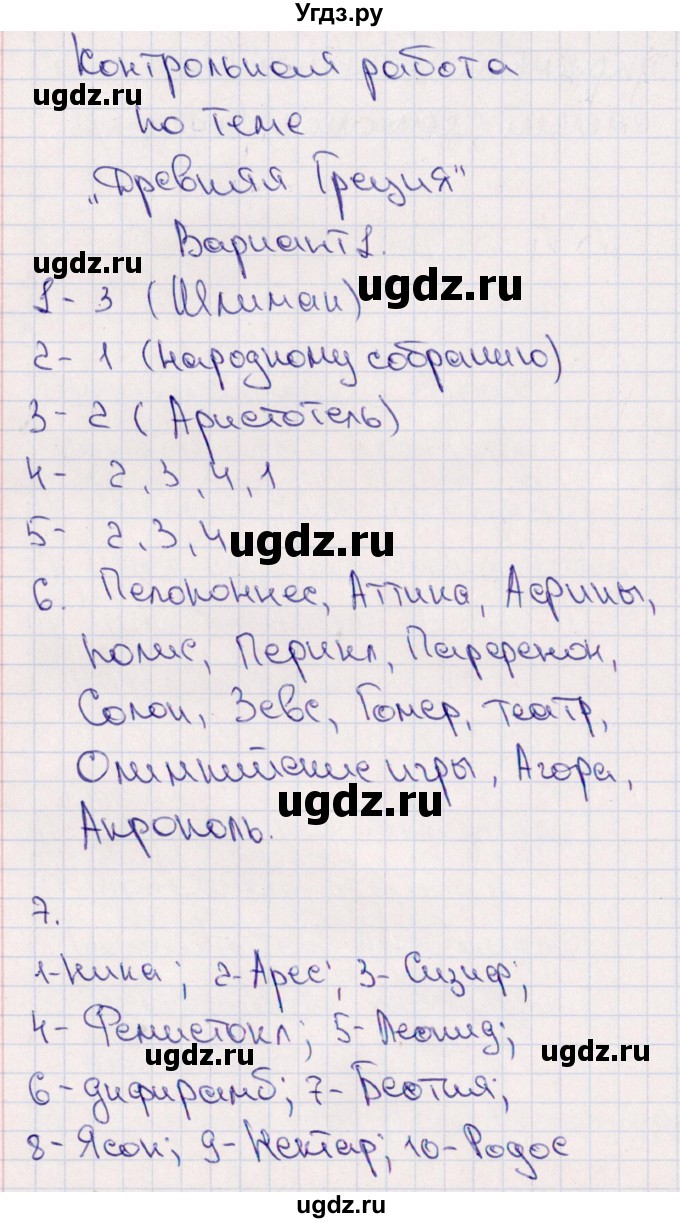 Угдз.ру
Контрольная работа
ugdz.ru
по теме
„Древняя Греция"
Вариант 1.
ugdz.ru
ugdz.ru
1- 3 (Шлиман)
2- 1 (народному собранию)
3- 2 (Аристотель)
4- 2, 3, 4, 1
5- 2, 3, 4
ugdz.ru
6. Пелопоннес, Аттика, Афины,
полис, Перикл, Парфенон,
Солон, Зевс, Гомер, театр,
Олимпийские игры, Агора,
ugdz.ru
Акрополь.
7.
1-Ника; 2-Арес; 3- Сизиф;
4- Фемистокл; 5-Леонид;
ugdz.ru
ugdz.ru
6-дифирамб; 7- Беотия;
8-Ясон; 9-Нектар; 10-Родос
ugdz.ru